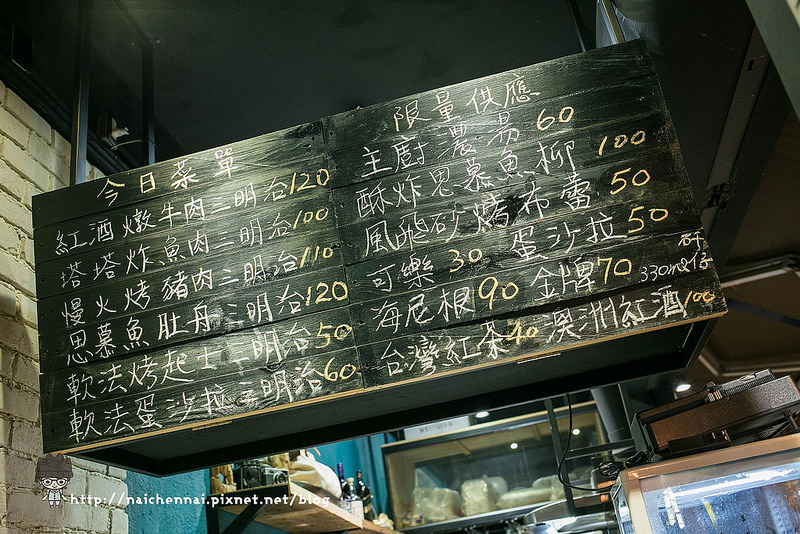 今日菜單
紅酒燉牛肉三明治120
塔塔炸魚肉三明治100
慢火烤豬肉三明治110
思慕魚肚丹三明治120
軟法烤起士三明治50
軟法蛋沙拉三明治60
限量供應
主廚濃湯 60
酥炸思慕魚柳 100
風飛砂烤布蕾 50
可樂 30 蛋沙拉 50
海尼根 90 金牌 70 330ml2仔
台灣紅茶 40 澳洲紅酒 100
http://naichennai.pixnet.net/blog